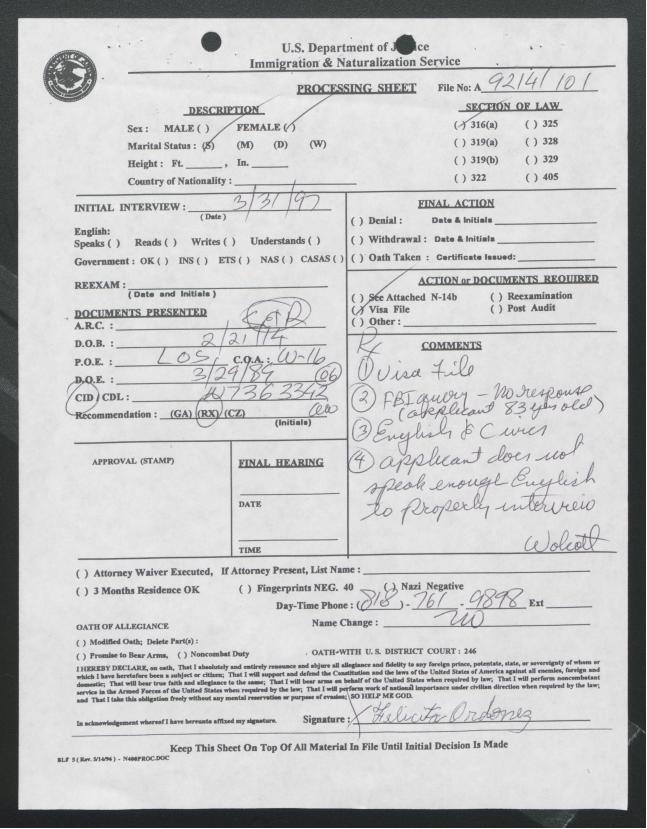 U.S. Department of Justice
Immigration & Naturalization Service
PROCESSING SHEET File No: A 92141101
DESCRIPTION
SECTION OF LAW
Sex : MALE ( ) FEMALE (/)
Marital Status : (S) (M) (D) (W)
Height : Ft. , In.
Country of Nationality :
(/) 316(a) ( ) 325
( ) 319(a) ( ) 328
( ) 319(b) ( ) 329
( ) 322 ( ) 405
INITIAL INTERVIEW : 3/31/97
(Date)
English:
Speaks ( ) Reads ( ) Writes ( ) Understands ( )
Government : OK ( ) INS ( ) ETS ( ) NAS ( ) CASAS ( )
REEXAM :
(Date and Initials)
DOCUMENTS PRESENTED
A.R.C. :
D.O.B. : 2/21/14
P.O.E. : LOS, C.O.A. : W-16
D.O.E. : 3/29/89 06
CID / CDL : N7363342
Recommendation : (GA) (RX) (CZ)
(Initials)
FINAL ACTION
( ) Denial : Date & Initials
( ) Withdrawal : Date & Initials
( ) Oath Taken : Certificate Issued:
ACTION or DOCUMENTS REQUIRED
( ) See Attached N-14b ( ) Reexamination
(/) Visa File ( ) Post Audit
( ) Other :
Rx COMMENTS
1 Visa File
2 FBI query - No response
(applicant 83 yrs old)
3 English & Civics
4 applicant does not
speak enough English
to properly interview
Wolcott
APPROVAL (STAMP)
FINAL HEARING
DATE
TIME
( ) Attorney Waiver Executed, If Attorney Present, List Name :
( ) 3 Months Residence OK ( ) Fingerprints NEG. 40 ( ) Nazi Negative
Day-Time Phone : (818) - 761 - 9898 Ext
Name Change : NO
OATH OF ALLEGIANCE
( ) Modified Oath; Delete Part(s) :
( ) Promise to Bear Arms, ( ) Noncombat Duty
OATH-WITH U.S. DISTRICT COURT : 246
I HEREBY DECLARE, on oath, That I absolutely and entirely renounce and abjure all allegiance and fidelity to any foreign prince, potentate, state, or sovereignty of whom or
which I have heretofore been a subject or citizen; That I will support and defend the Constitution and the laws of the United States of America against all enemies, foreign and
domestic; That will bear true faith and allegiance to the same; That I will bear arms on behalf of the United States when required by law; That I will perform noncombatant
service in the Armed Forces of the United States when required by the law; That I will perform work of national importance under civilian direction when required by the law;
and That I take this obligation freely without any mental reservation or purpose of evasion; SO HELP ME GOD.
In acknowledgement whereof I have hereunto affixed my signature.
Signature : Felicita Ordonez
Keep This Sheet On Top Of All Material In File Until Initial Decision Is Made
BLF 5 ( Rev. 5/14/96 ) - N400PROC.DOC